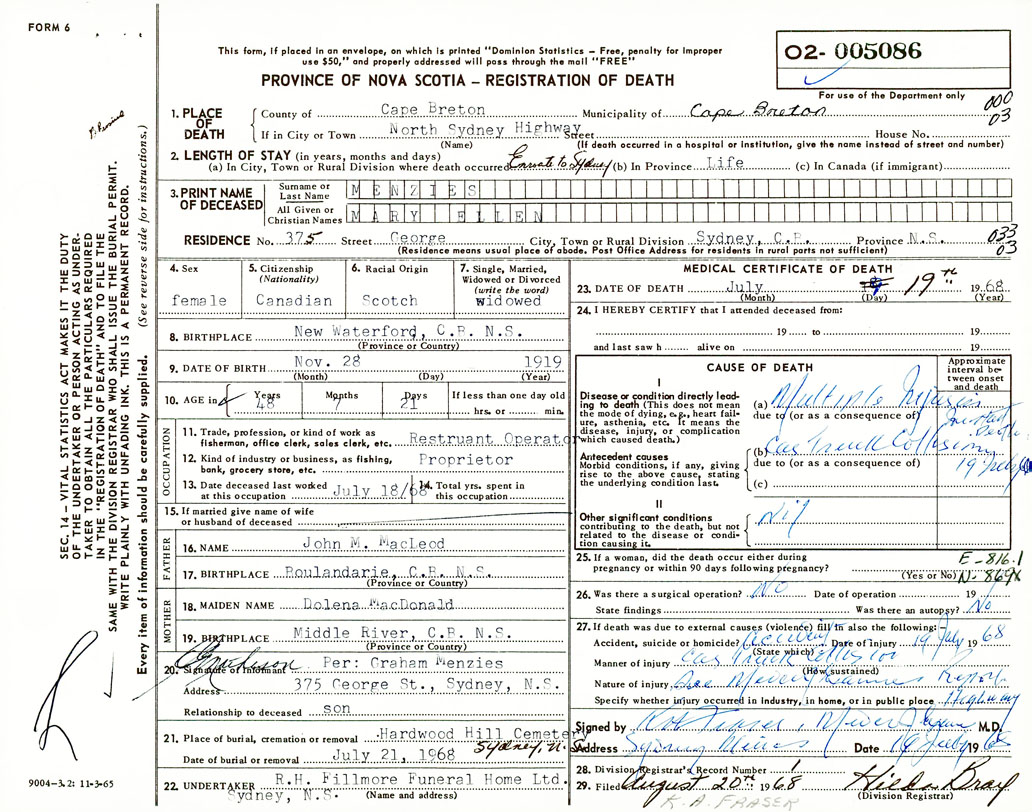 FORM 6
This form, if placed in an envelope, on which is printed "Dominion Statistics – Free, penalty for improper
use $50," and properly addressed will pass through the mail "FREE"
PROVINCE OF NOVA SCOTIA – REGISTRATION OF DEATH
O2- 005086
For use of the Department only
000
03
1. PLACE OF DEATH
County of Cape Breton Municipality of Cape Breton
If in City or Town North Sydney Highway Street House No.
(Name) (If death occurred in a hospital or institution, give the name instead of street and number)
2. LENGTH OF STAY (in years, months and days)
(a) In City, Town or Rural Division where death occurred Enroute to Sydney (b) In Province Life (c) In Canada (if immigrant)
3. PRINT NAME OF DECEASED
Surname or Last Name MENZIES
All Given or Christian Names MARY ELLEN
RESIDENCE No. 375 Street George City, Town or Rural Division Sydney, C.B. Province N.S.
(Residence means usual place of abode. Post Office Address for residents in rural parts not sufficient)
033
03
4. Sex
female
5. Citizenship
(Nationality)
Canadian
6. Racial Origin
Scotch
7. Single, Married,
Widowed or Divorced
(write the word)
widowed
8. BIRTHPLACE New Waterford, C.B. N.S.
(Province or Country)
9. DATE OF BIRTH Nov. 28 1919
(Month) (Day) (Year)
10. AGE in Years 48 Months 7 Days 21
If less than one day old
hrs. or min.
OCCUPATION
11. Trade, profession, or kind of work as
fisherman, office clerk, sales clerk, etc. Restruant Operator
12. Kind of industry or business, as fishing,
bank, grocery store, etc. Proprietor
13. Date deceased last worked
at this occupation July 18/68
14. Total yrs. spent in
this occupation
15. If married give name of wife
or husband of deceased
FATHER
16. NAME John M. MacLeod
17. BIRTHPLACE Boulandarie, C.B. N.S.
(Province or Country)
MOTHER
18. MAIDEN NAME Dolena MacDonald
19. BIRTHPLACE Middle River, C.B. N.S.
(Province or Country)
20. Signature of Informant Per: Graham Menzies
Address 375 George St., Sydney, N.S.
Relationship to deceased son
21. Place of burial, cremation or removal Hardwood Hill Cemetery
Sydney, N.S.
Date of burial or removal July 21, 1968
22. UNDERTAKER R.H. Fillmore Funeral Home Ltd.
Sydney, N.S. (Name and address)
MEDICAL CERTIFICATE OF DEATH
23. DATE OF DEATH July 19th 1968
(Month) (Day) (Year)
24. I HEREBY CERTIFY that I attended deceased from:
19 to 19
and last saw h alive on 19
CAUSE OF DEATH
Approximate
interval be-
tween onset
and death
I
Disease or condition directly lead-
ing to death (This does not mean
the mode of dying, e.g., heart fail-
ure, asthenia, etc. It means the
disease, injury, or complication
which caused death.)
(a) Multiple Injuries
due to (or as a consequence of)
Instant
Death
Antecedent causes
Morbid conditions, if any, giving
rise to the above cause, stating
the underlying condition last.
(b) Car Truck Collision
due to (or as a consequence of)
19 July
(c)
II
Other significant conditions
contributing to the death, but not
related to the disease or condi-
tion causing it.
Nil
25. If a woman, did the death occur either during
pregnancy or within 90 days following pregnancy?
(Yes or No)
E-816.1
N-869X
26. Was there a surgical operation? No Date of operation 19
State findings Was there an autopsy? No
27. If death was due to external causes (violence) fill in also the following:
Accident, suicide or homicide? Accident Date of Injury 19 July 1968
(State which)
Manner of injury Car Truck Collision
(How sustained)
Nature of injury See Medical Examiners Report
Specify whether injury occurred in Industry, in home, or in public place Highway
Signed by M.D.
Address Sydney Mines Date 19 July 1968
28. Division Registrar's Record Number 1
29. Filed August 20th 1968 Hilda Bray
(Division Registrar)
K. A. FRASER
SEC. 14 – VITAL STATISTICS ACT MAKES IT THE DUTY
OF THE UNDERTAKER OR PERSON ACTING AS UNDER-
TAKER TO OBTAIN ALL THE PARTICULARS REQUIRED
IN THE "REGISTRATION OF DEATH" AND TO FILE THE
SAME WITH THE DIVISION REGISTRAR WHO SHALL ISSUE THE BURIAL PERMIT.
WRITE PLAINLY WITH UNFADING INK. THIS IS A PERMANENT RECORD.
Every item of information should be carefully supplied. (See reverse side for instructions.)
9004–3.2: 11-3-65